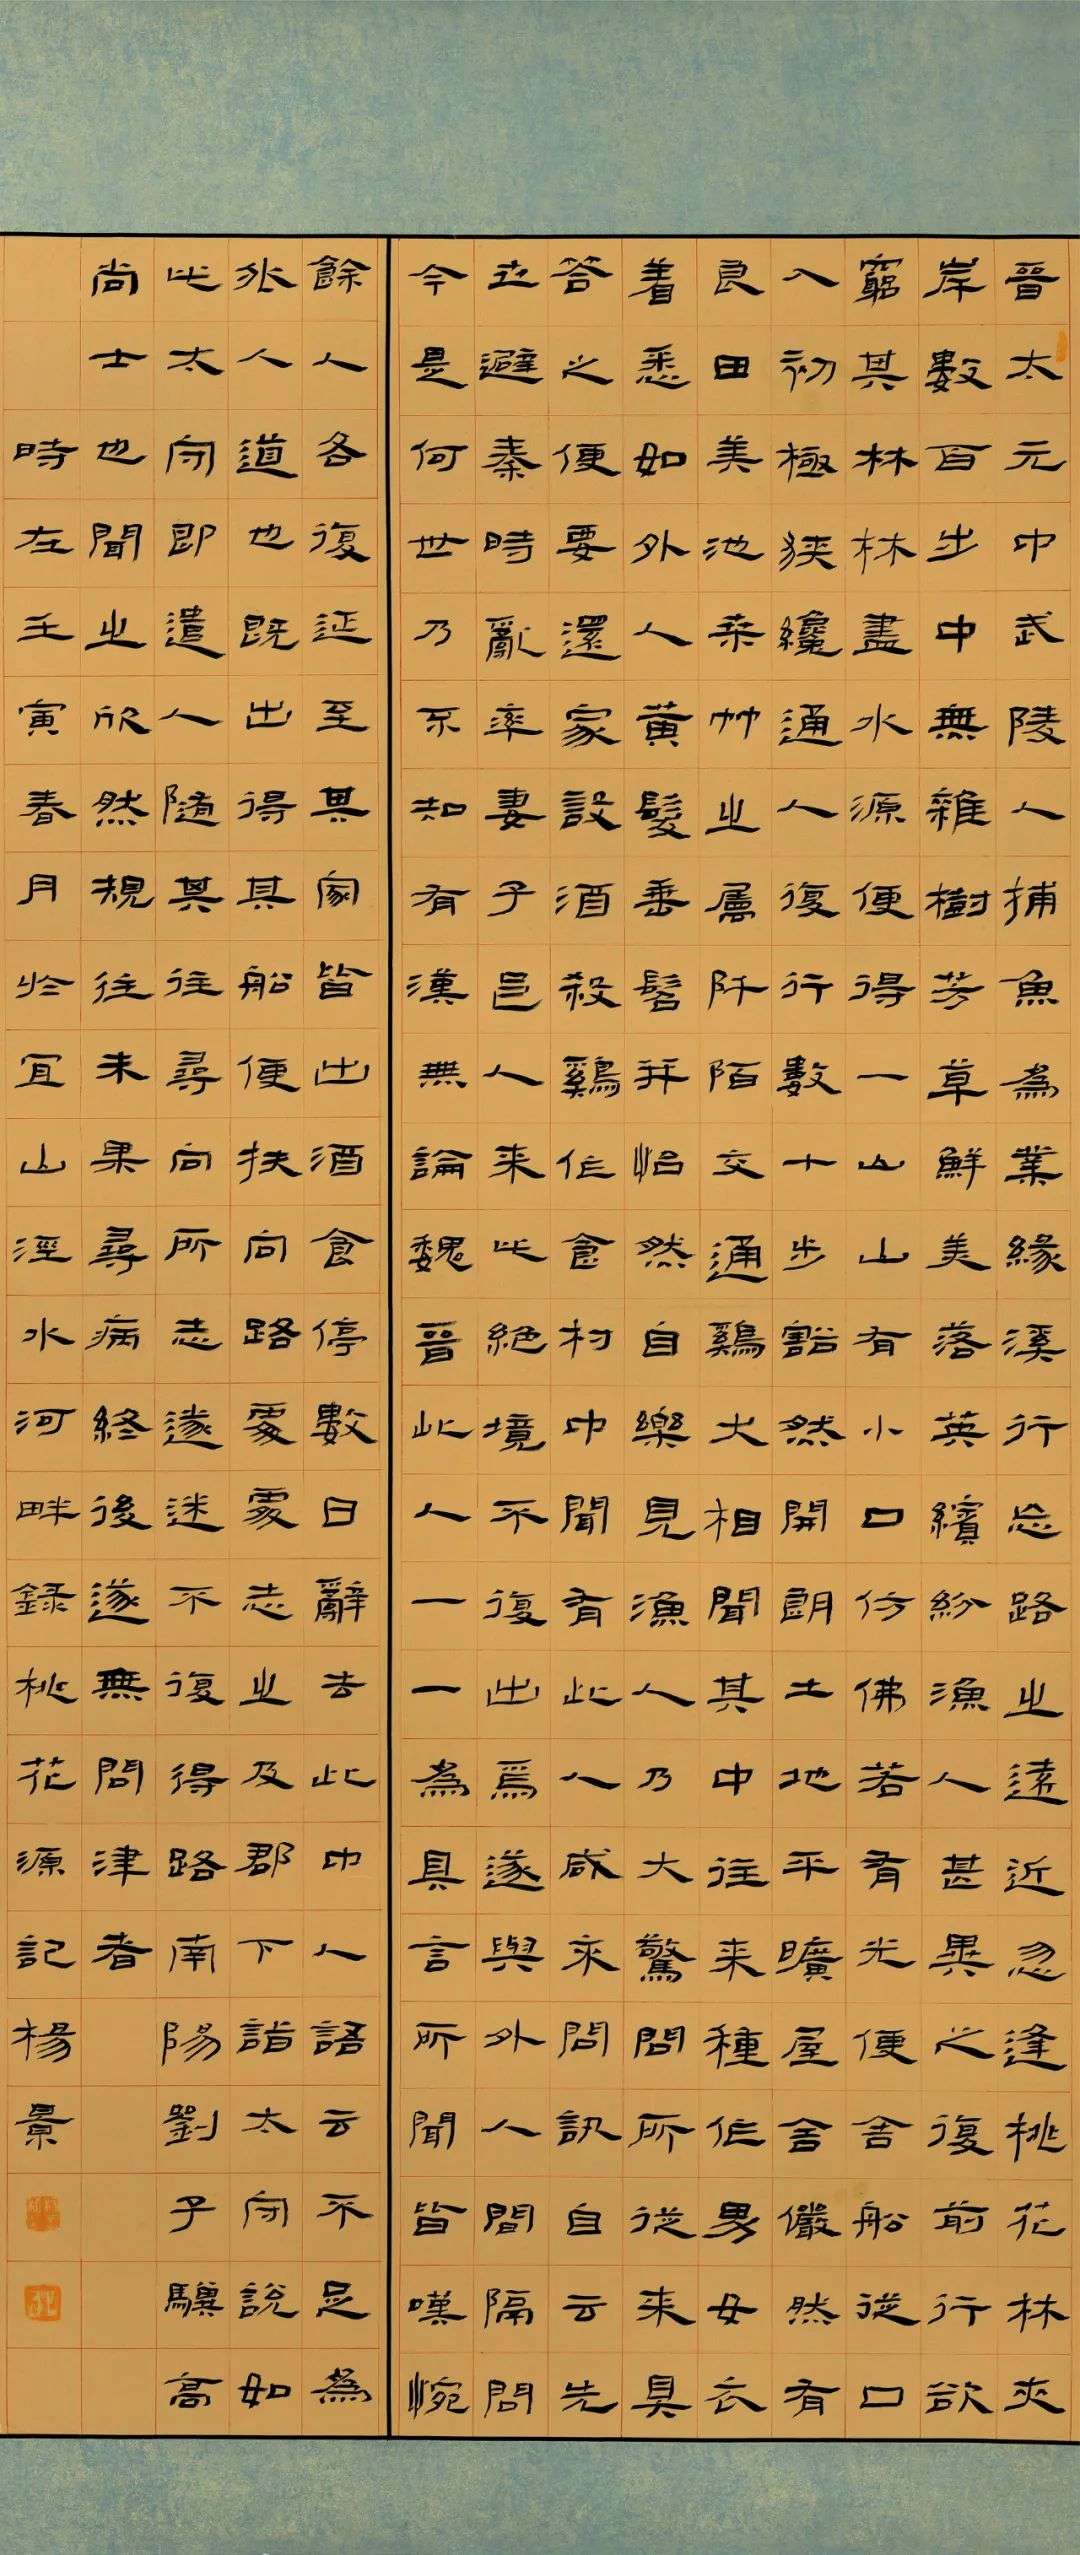 晉太元中武陵人捕魚為業緣溪行忘路之遠近忽逢桃花林夾
岸數百步中無雜樹芳草鮮美落英繽紛漁人甚異之復前行欲
窮其林林盡水源便得一山山有小口仿佛若有光便舍船從口
入初極狹纔通人復行數十步豁然開朗土地平曠屋舍儼然有
良田美池桑竹之屬阡陌交通鷄犬相聞其中往来種作男女衣
着悉如外人黃髮垂髫并怡然自樂見漁人乃大驚問所從来具
答之便要還家設酒殺鷄作食村中聞有此人咸来問訊自云先
世避秦時亂率妻子邑人来此絶境不復出焉遂與外人間隔問
今是何世乃不知有漢無論魏晉此人一一為具言所聞皆嘆惋
餘人各復延至其家皆出酒食停數日辭去此中人語云不足為
外人道也既出得其船便扶向路處處志之及郡下詣太守說如
此太守即遣人隨其往尋向所志遂迷不復得路南陽劉子驥高
尚士也聞之欣然規往未果尋病終後遂無問津者
時在壬寅春月於宜山涇水河畔録桃花源記楊景